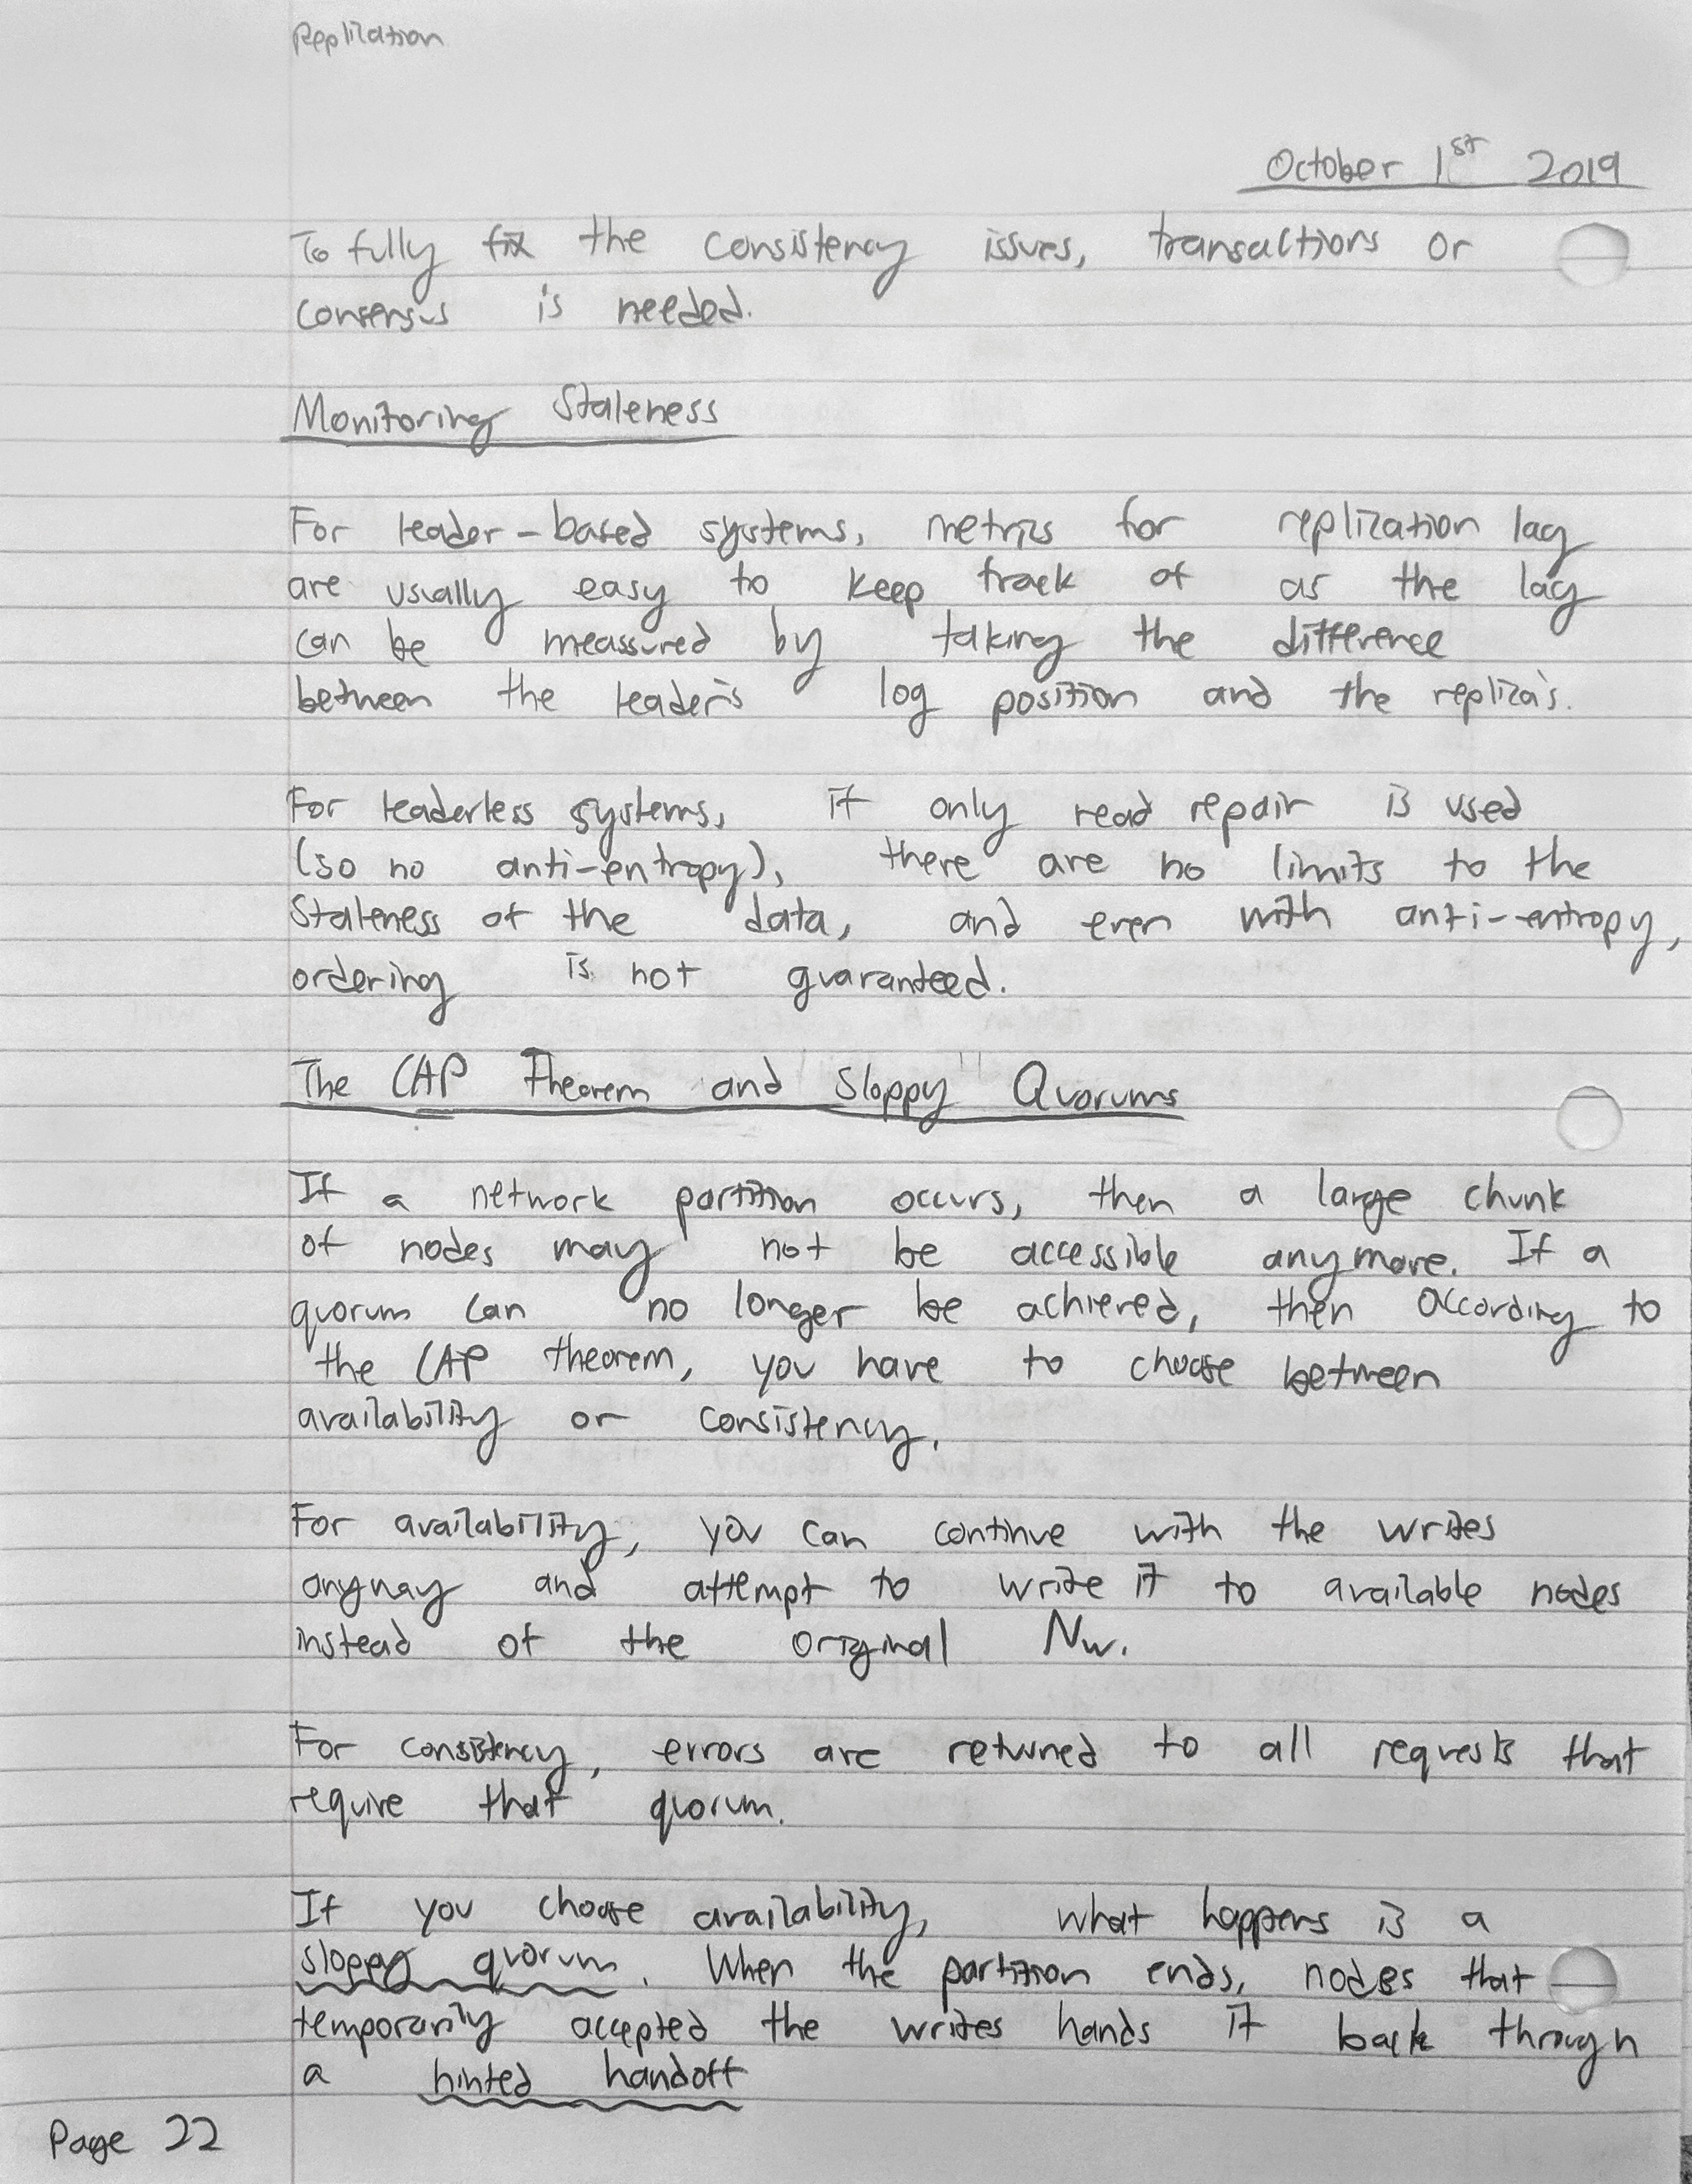 Replication
October 1st 2019
To fully fix the consistency issues, transactions or
consensus is needed.
Monitoring Staleness
For leader-based systems, metrics for replication lag
are usually easy to keep track of as the lag
can be meassured by taking the difference
between the leader's log position and the replica's.
For leaderless systems, if only read repair is used
(so no anti-entropy), there are no limits to the
staleness of the data, and even with anti-entropy,
ordering is not guaranteed.
The CAP Theorem and Sloppy Quorums
If a network partition occurs, then a large chunk
of nodes may not be accessible anymore. If a
quorum can no longer be achieved, then according to
the CAP theorem, you have to choose between
availability or consistency.
For availability, you can continue with the writes
anyway and attempt to write it to available nodes
instead of the original Nw.
For consistency, errors are returned to all requests that
require that quorum.
If you choose availability, what happens is a
sloppy quorum. When the partition ends, nodes that
temporarily accepted the writes hands it back through
a hinted handoff
Page 22